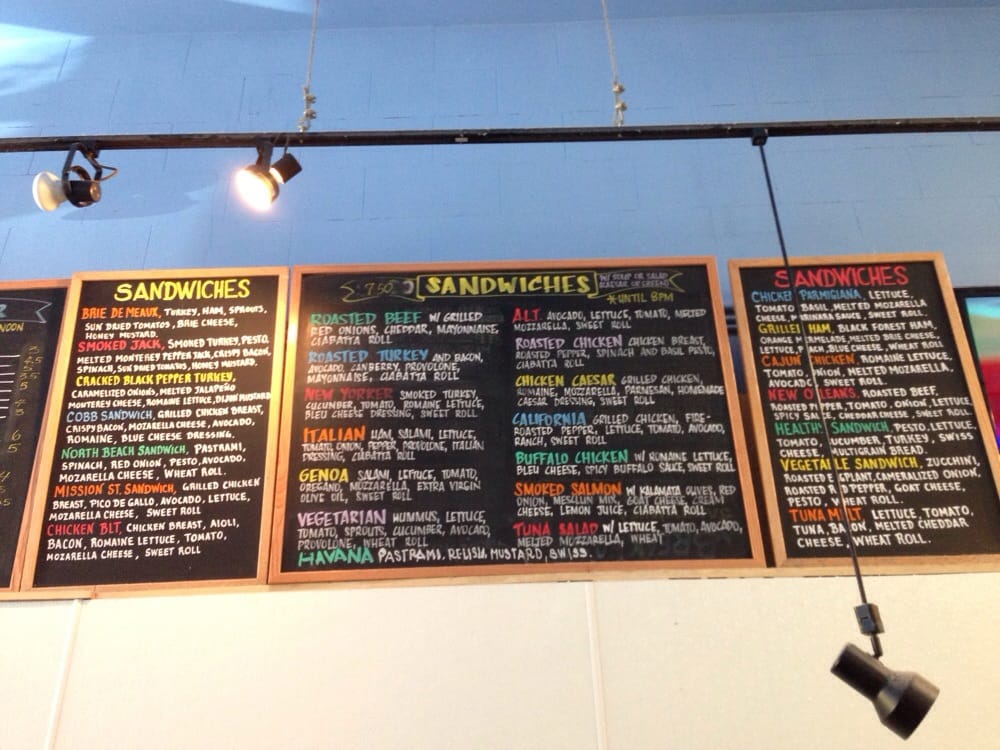 NOON
SANDWICHES
BRIE DE MEAUX, TURKEY, HAM, SPROUTS,
SUN DRIED TOMATOS, BRIE CHEESE,
HONEY MUSTARD.
SMOKED JACK, SMOKED TURKEY, PESTO,
MELTED MONTEREY PEPPER JACK, CRISPY BACON,
SPINACH, SUN DRIED TOMATOS, HONEY MUSTARD.
CRACKED BLACK PEPPER TURKEY,
CARAMELIZED ONIONS, MELTED JALAPEÑO
MONTEREY CHEESE, ROMAINE LETTUCE, DIJON MUSTARD
COBB SANDWICH, GRILLED CHICKEN BREAST,
CRISPY BACON, MOZARELLA CHEESE, AVOCADO,
ROMAINE, BLUE CHEESE DRESSING.
NORTH BEACH SANDWICH, PASTRAMI,
SPINACH, RED ONION, PESTO, AVOCADO.
MOZARELLA CHEESE, WHEAT ROLL.
MISSION ST. SANDWICH, GRILLED CHICKEN
BREAST, PICO DE GALLO, AVOCADO, LETTUCE,
MOZARELLA CHEESE, SWEET ROLL
CHICKEN BLT, CHICKEN BREAST, AIOLI,
BACON, ROMAINE LETTUCE, TOMATO,
MOZARELLA CHEESE, SWEET ROLL
7.50 SANDWICHES W/ SOUP OR SALAD
(CAESAR OR GREEN)
*UNTIL 8PM
ROASTED BEEF W/ GRILLED
RED ONIONS, CHEDDAR, MAYONNAISE,
CIABATTA ROLL
ROASTED TURKEY AND BACON,
AVOCADO, CANBERRY, PROVOLONE,
MAYONNAISE, CIABATTA ROLL
NEW YORKER SMOKED TURKEY,
CUCUMBER, TOMATO, ROMAINE LETTUCE,
BLEU CHEESE DRESSING, SWEET ROLL
ITALIAN HAM, SALAMI, LETTUCE,
TOMATO, ONION, PEPPER, PROVOLONE, ITALIAN
DRESSING, CIABATTA ROLL
GENOA SALAMI, LETTUCE, TOMATO,
OREGANO, MOZZARELLA, EXTRA VIRGIN
OLIVE OIL, SWEET ROLL
VEGETARIAN HUMMUS, LETTUCE,
TOMATO, SPROUTS, CUCUMBER, AVOCADO,
PROVOLONE, WHEAT ROLL
HAVANA PASTRAMI, RELISH, MUSTARD, SWISS.
A.L.T. AVOCADO, LETTUCE, TOMATO, MELTED
MOZZARELLA, SWEET ROLL
ROASTED CHICKEN CHICKEN BREAST,
ROASTED PEPPER, SPINACH AND BASIL PESTO,
CIABATTA ROLL
CHICKEN CAESAR GRILLED CHICKEN,
ROMAINE, MOZZARELLA, PARMESAN, HOMEMADE
CAESAR DRESSING, SWEET ROLL
CALIFORNIA GRILLED CHICKEN, FIRE-
ROASTED PEPPER, LETTUCE, TOMATO, AVOCADO,
RANCH, SWEET ROLL
BUFFALO CHICKEN W/ ROMAINE LETTUCE,
BLEU CHEESE, SPICY BUFFALO SAUCE, SWEET ROLL
SMOKED SALMON W/ KALAMATA OLIVES, RED
ONION, MESCLUN MIX, GOAT CHEESE, CREAM
CHEESE, LEMON JUICE, CIABATTA ROLL
TUNA SALAD W/ LETTUCE, TOMATO, AVOCADO,
MELTED MOZZARELLA, WHEAT
SANDWICHES
CHICKEN PARMIGIANA, LETTUCE,
TOMATO BASIL, MELTED MOZARELLA
CHEESE, MARINARA SAUCE, SWEET ROLL.
GRILLED HAM, BLACK FOREST HAM,
ORANGE MARMELADE, MELTED BRIE CHEESE,
LETTUCE, BLUE CHEESE, WHEAT ROLL
CAJUN CHICKEN, ROMAINE LETTUCE,
TOMATO, ONION, MELTED MOZARELLA,
AVOCADO, SWEET ROLL
NEW ORLEANS, ROASTED BEEF,
ROASTED PEPPER, TOMATO, ONION, LETTUCE,
SPICY SAUCE, CHEDDAR CHEESE, SWEET ROLL
HEALTHY SANDWICH, PESTO, LETTUCE,
TOMATO, CUCUMBER, TURKEY, SWISS
CHEESE, MULTIGRAIN BREAD.
VEGETABLE SANDWICH, ZUCCHINI,
ROASTED EGGPLANT, CAMERALIZED ONION,
ROASTED RED PEPPER, GOAT CHEESE,
PESTO, WHEAT ROLL.
TUNA MELT LETTUCE, TOMATO,
TUNA, BACON, MELTED CHEDDAR
CHEESE, WHEAT ROLL.